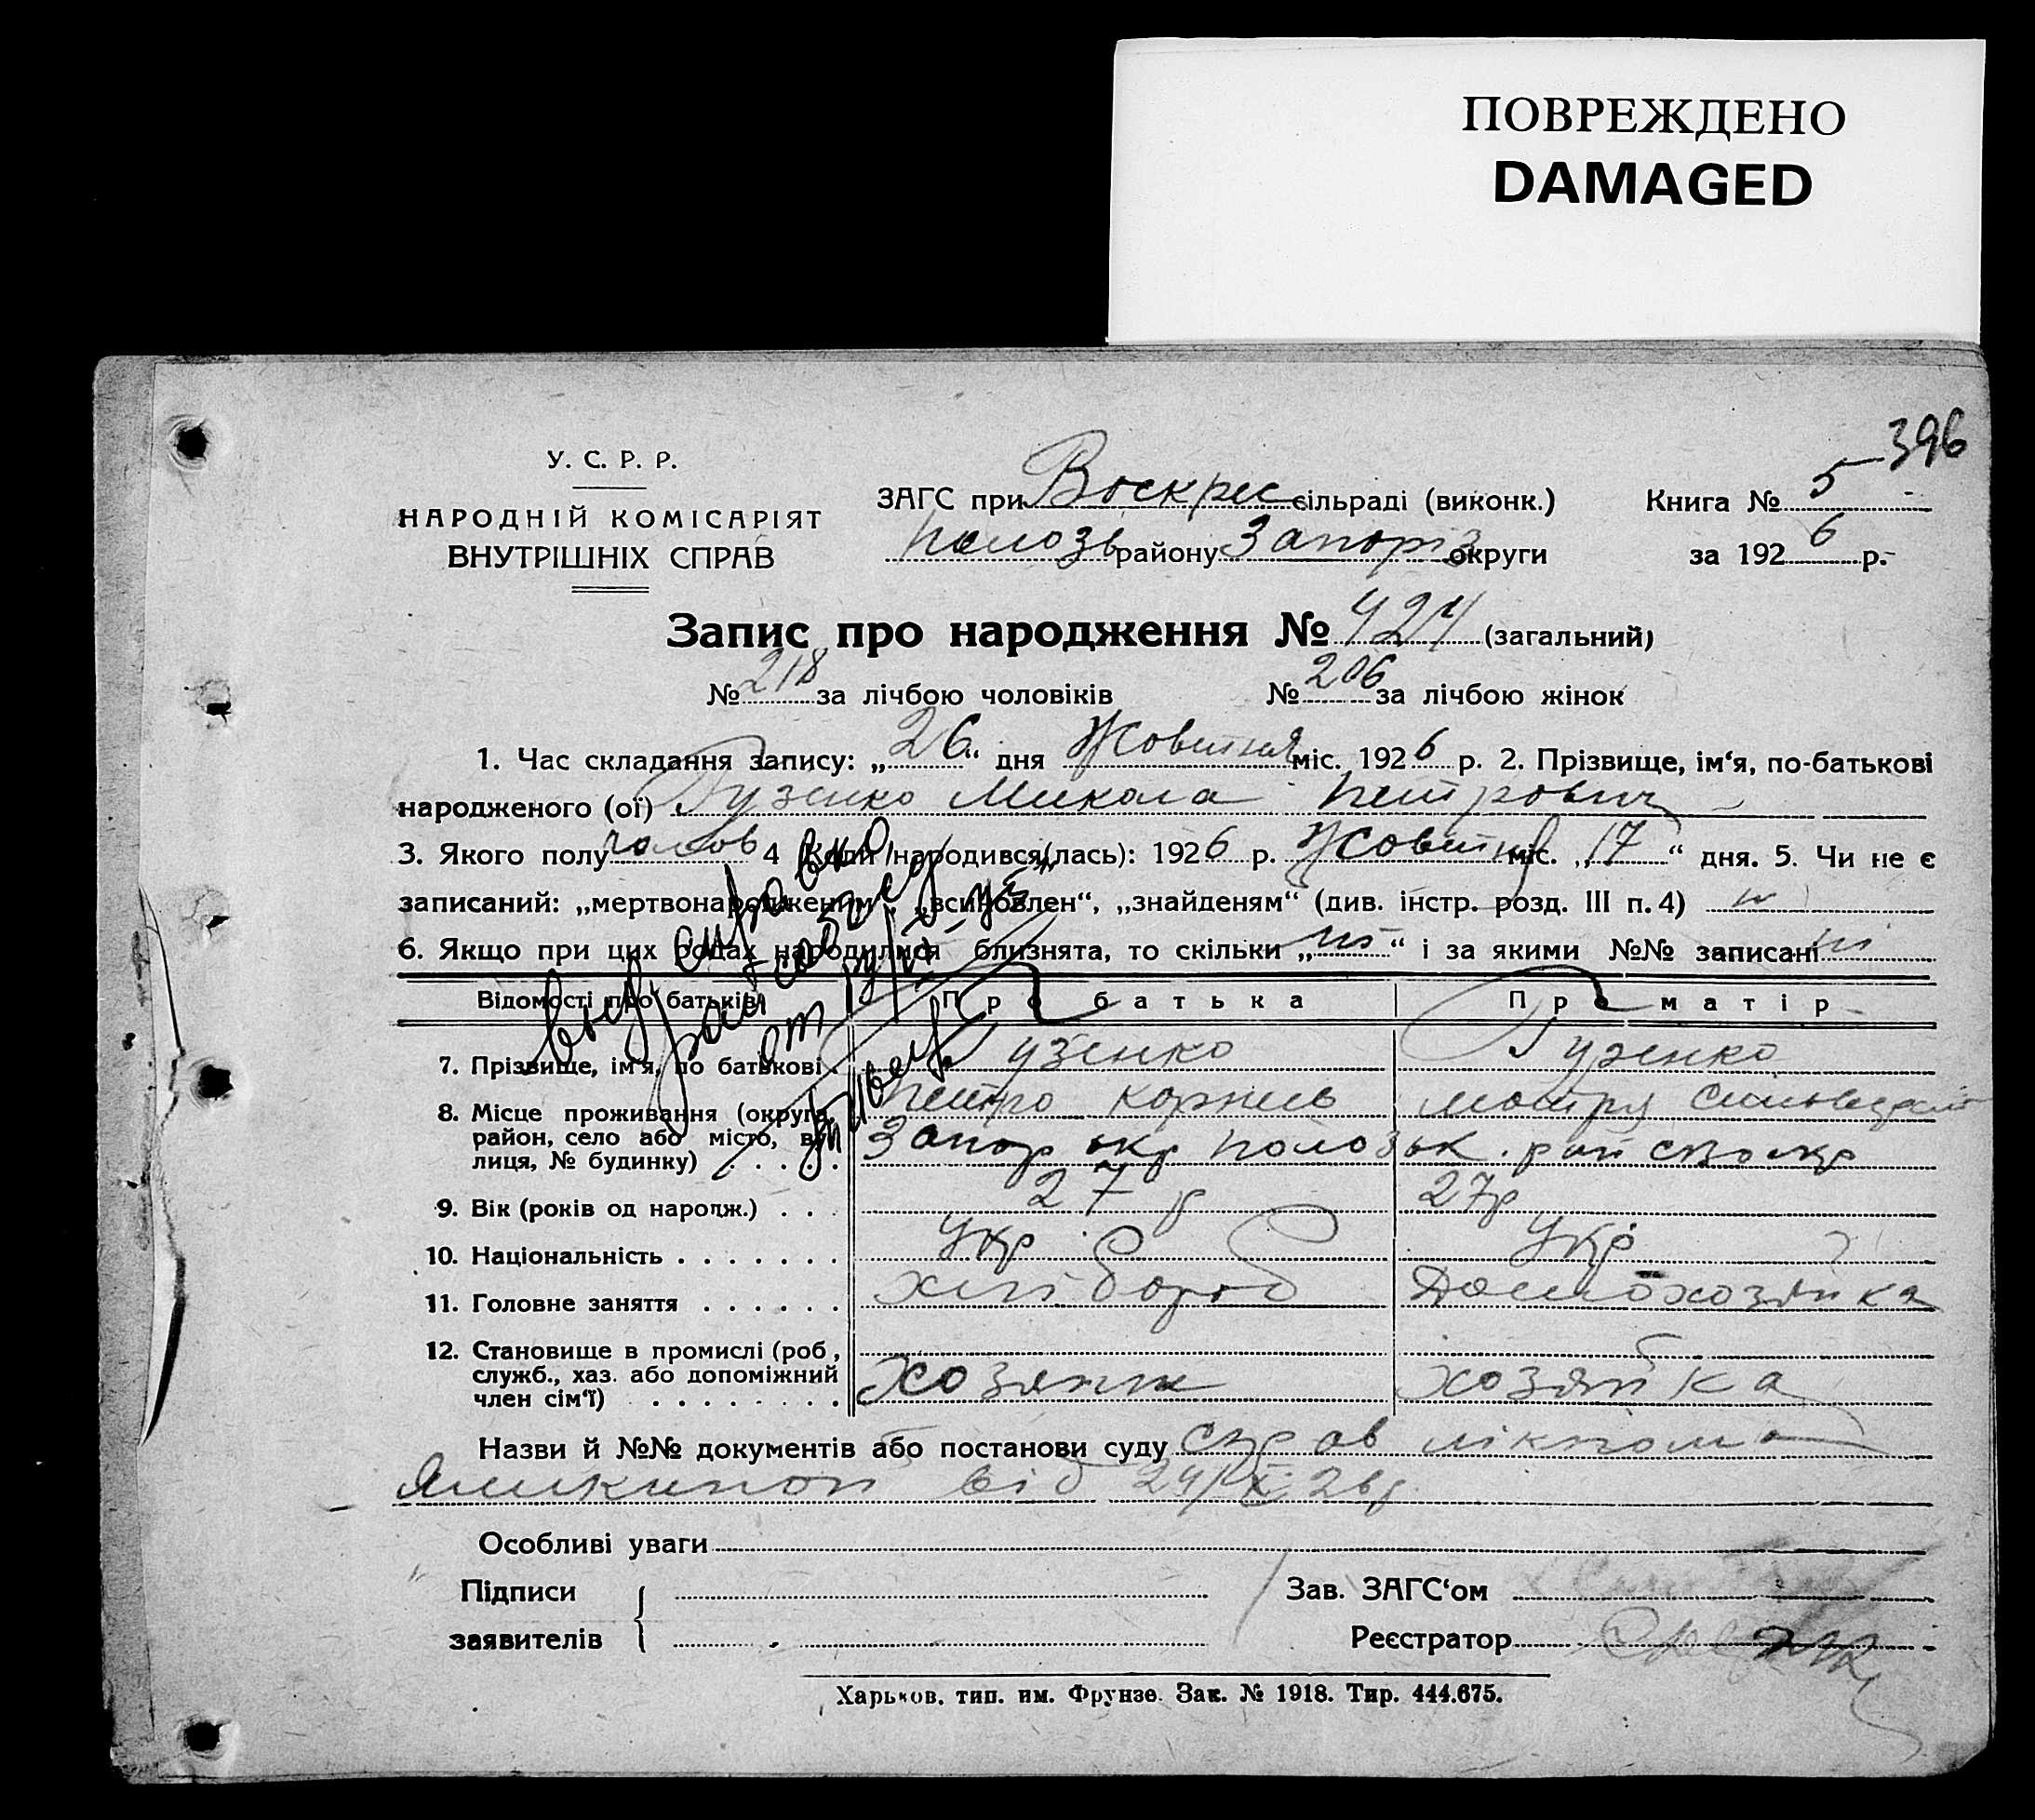 ПОВРЕЖДЕНО
DAMAGED
396
У. С. Р. Р.
НАРОДНІЙ КОМІСАРІЯТ
ВНУТРІШНІХ СПРАВ
ЗАГС при Воскрес сільраді (виконк.)
Полозь району Запоріз округи
Книга № 5
за 1926 р.
Запис про народження № 424 (загальний)
№ 218 за лічбою чоловіків № 206 за лічбою жінок
1. Час складання запису: „26“ дня Жовтня міс. 1926 р. 2. Прізвище, ім‘я, по-батькові
народженого (ої) Гузенко Микола Петрович
3. Якого полу чолов 4 Коли народився(лась): 1926 р. Жовтня міс. „17“ дня. 5. Чи не є
записаний: „мертвонародженим“ „всиновлен“, „знайденям“ (див. інстр. розд. III п. 4)
6. Якщо при цих родах народилися близнята, то скільки „ні“ і за якими №№ записані ні
Відомості про батьків Про батька Про матір
7. Прізвище, ім‘я, по батькові Гузенко Гузенко
Петро Корнеев мотря
8. Місце проживання (округа, район, село або місто, вулиця, № будинку) Запор окр Полозьк. рай
9. Вік (років од народж.) 27 р 27р
10. Національність Укр Укр
11. Головне заняття хлібороб Домохозяйка
12. Становище в промислі (роб, служб., хаз. або допоміжний член сім‘ї) Хозяин хозяйка
Назви й №№ документів або постанови суду справ лікпома
від 24/X 26р.
Особливі уваги
Підписи
заявителів
Зав. ЗАГС‘ом
Реєстратор
Харьков, тип. им. Фрунзе. Зак. № 1918. Тир. 444.675.